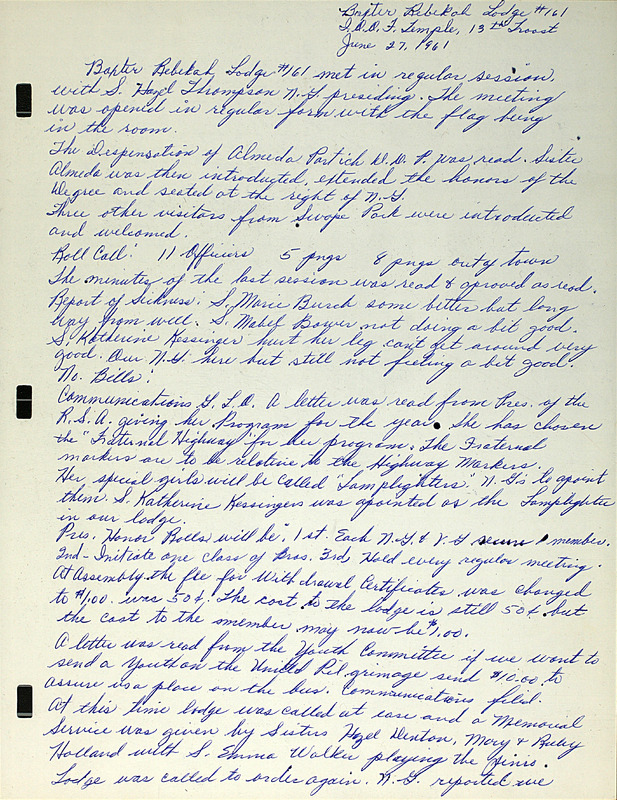 Baxter Rebekah Lodge #161
I.O.O.F. Temple, 13th Troost
June 27, 1961
Baxter Rebekah Lodge #161 met in regular session
with S. Hazel Thompson N.G. presiding. The meeting
was opened in regular form with the flag being
in the room.
The Despensation of Almeda Partich D.D.P. was read. Sister
Almeda was then introducted, extended the honors of the
Degree and seated at the right of N.G.
Three other visitors from Swope Park were introducted
and welcomed.
Roll Call: 11 Officiers 5 pngs 8 pngs out of town
The minutes of the last session was read & aproved as read.
Report of Sickness: S. Marie Burch some bitter but long
way from will. S. Mabel Bower not doing a bit good.
S. Katherine Kessinger hurt her leg can't get around very
good. Our N.G. here but still not feeling a bit good.
No. Bills:
Communications G.L.O. A letter was read from Pres. of the
R.S.A. giving her Program for the year. She has chosen
the "Fraternal Highway" for her program. The Fraternal
markers are to be relative to the Highway Markers.
Her, special girls will be called "Lamplighters". N.G.'s to apoint
them. S. Katherine Kessingers was apointed as the Lamplighter
in our lodge.
Pres. Honor Rolls will be: 1st. Each N.G. & V.G. secure 1 member.
2nd - Initiate one class of Bros. 3rd Hold every regular meeting.
At Assembly the fee for Withdrawl Certificates was changed
to $1.00. was 50¢. The cost to the lodge is still 50¢ but
the cost to the member may now be $1.00.
A letter was read from the Youth Committee if we want to
send a Youth on the United Pilgrimage send $10.00 to
assure us a place on the bus. Communications filed.
At this time lodge was called at ease and a Memorial
Service was given by Sisters Hazel Denton, Mary & Ruby
Holland with S. Emma Walker playing the
Lodge was called to order again. N.G. reported we